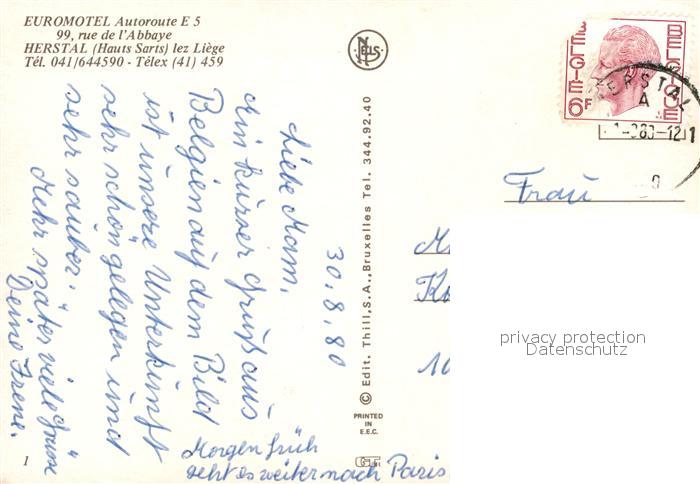 EUROMOTEL Autoroute E 5
99, rue de l'Abbaye
HERSTAL (Hauts Sarts) lez Liège
Tél. 041/644590 - Télex (41) 459
30.8.80
Liebe Mam,
ein kurzer Gruß aus
Belgien auf dem Bild
ist unsere Unterkunft
sehr schön gelegen und
sehr sauber.
Mehr später viele Grüsse
Deine Irene.
Morgen früh
geht es weiter nach Paris
1
NELS
© Edit. Thill, S.A., Bruxelles Tel. 344.92.40
PRINTED
IN
E.E.C.
BELGIE BELGIQUE
6F
HERSTAL
A
Frau
M
K
10
privacy protection
Datenschutz